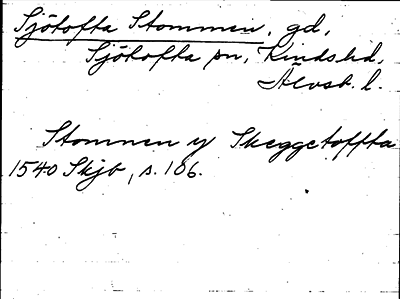 Sjötofta Stommen, gd,
Sjötofta sn, Kinds hd,
Älvsb. l.
Stommen y Skeggetoffta
1540 Skjb, s. 106.